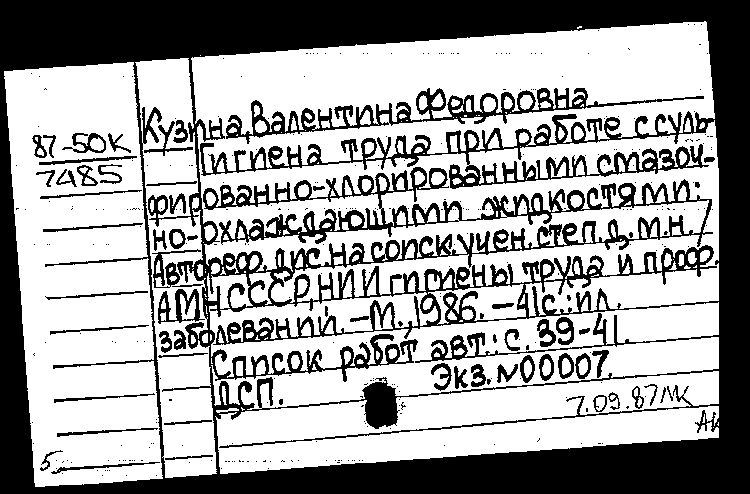 Кузина, Валентина Федоровна.
87-50К
7485
Гигиена труда при работе с суль-
фированно-хлорированными смазоч-
но-охлаждающими жидкостями:
Автореф. дис. на соиск. учен. степ. д.м.н. /
АМН СССР, НИИ гигиены труда и проф.
заболеваний. -М., 1986. -41с.: ил.
Список работ авт.: с. 39-41.
ДСП. Экз. №00007.
7.09.87 МК
АК
5